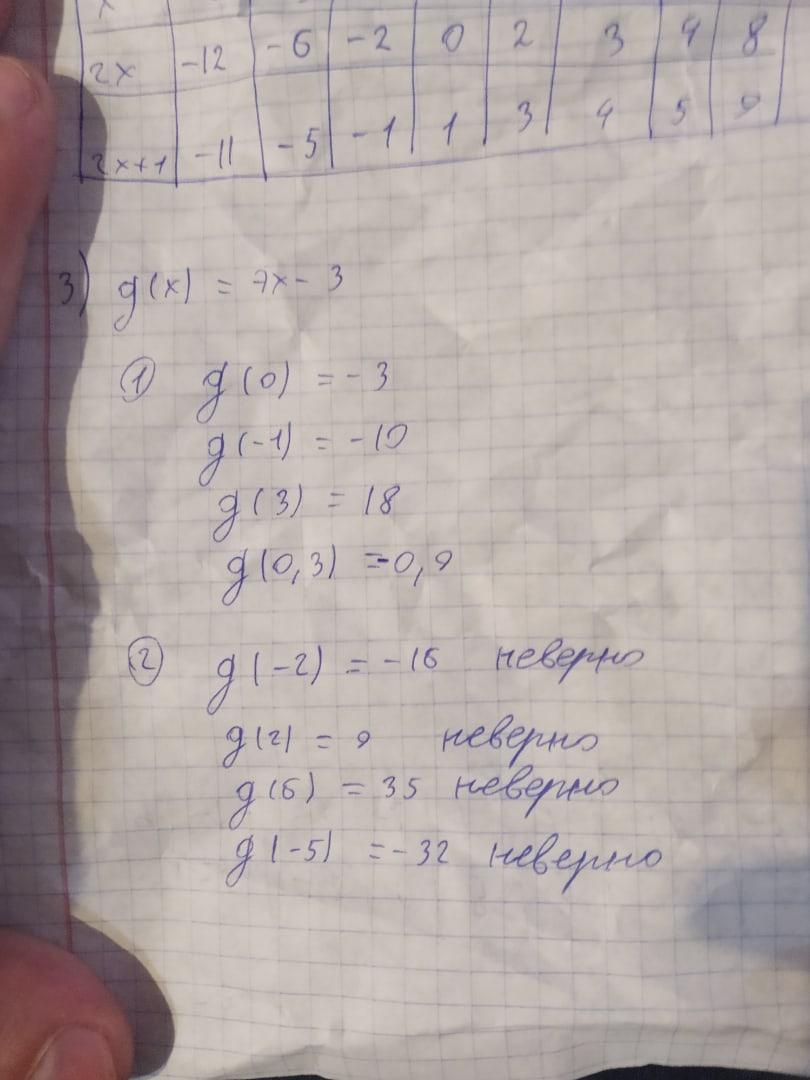 2x -12 -6 -2 0 2 3 4 8
2x+1 -11 -5 -1 1 3 4 5 9
3) g(x) = 7x - 3
① g(0) = -3
g(-1) = -10
g(3) = 18
g(0,3) = -0,9
② g(-2) = -16 неверно
g(2) = 9 неверно
g(6) = 35 неверно
g(-5) = -32 неверно